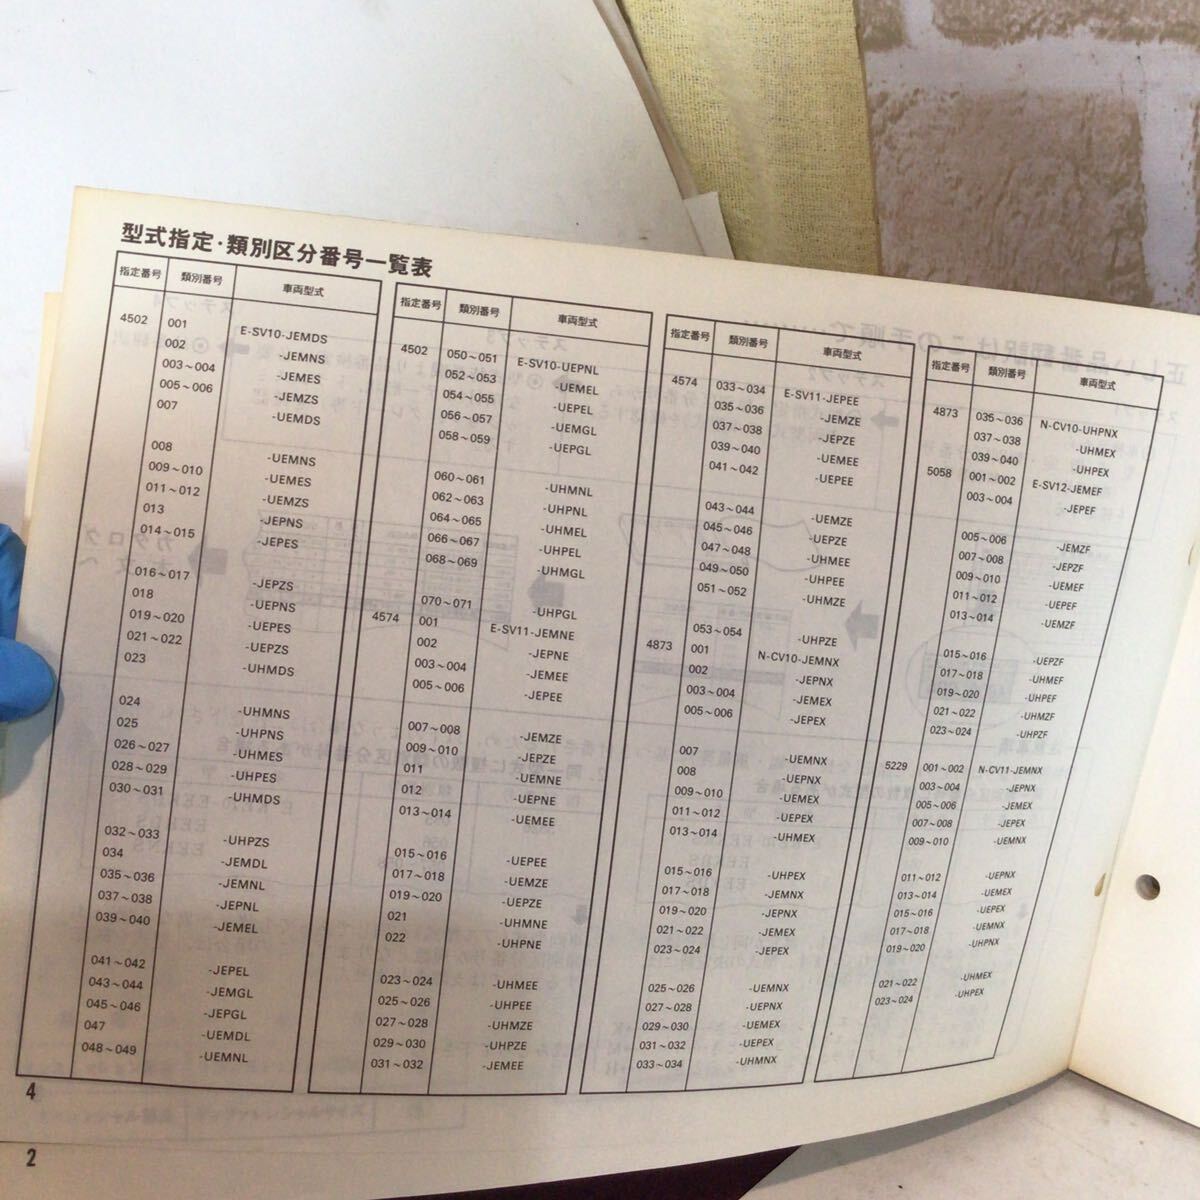 型式指定・類別区分番号一覧表
指定番号 類別番号 車両型式
4502 001 E-SV10-JEMDS
002 -JEMNS
003～004 -JEMES
005～006 -JEMZS
007 -UEMDS
008 -UEMNS
009～010 -UEMES
011～012 -UEMZS
013 -JEPNS
014～015 -JEPES
016～017 -JEPZS
018 -UEPNS
019～020 -UEPES
021～022 -UEPZS
023 -UHMDS
024 -UHMNS
025 -UHPNS
026～027 -UHMES
028～029 -UHPES
030～031 -UHMDS
032～033 -UHPZS
034 -JEMDL
035～036 -JEMNL
037～038 -JEPNL
039～040 -JEMEL
041～042 -JEPEL
043～044 -JEMGL
045～046 -JEPGL
047 -UEMDL
048～049 -UEMNL
指定番号 類別番号 車両型式
4502 050～051 E-SV10-UEPNL
052～053 -UEMEL
054～055 -UEPEL
056～057 -UEMGL
058～059 -UEPGL
060～061 -UHMNL
062～063 -UHPNL
064～065 -UHMEL
066～067 -UHPEL
068～069 -UHMGL
070～071 -UHPGL
4574 001 E-SV11-JEMNE
002 -JEPNE
003～004 -JEMEE
005～006 -JEPEE
007～008 -JEMZE
009～010 -JEPZE
011 -UEMNE
012 -UEPNE
013～014 -UEMEE
015～016 -UEPEE
017～018 -UEMZE
019～020 -UEPZE
021 -UHMNE
022 -UHPNE
023～024 -UHMEE
025～026 -UHPEE
027～028 -UHMZE
029～030 -UHPZE
031～032 -JEMEE
指定番号 類別番号 車両型式
4574 033～034 E-SV11-JEPEE
035～036 -JEMZE
037～038 -JEPZE
039～040 -UEMEE
041～042 -UEPEE
043～044 -UEMZE
045～046 -UEPZE
047～048 -UHMEE
049～050 -UHPEE
051～052 -UHMZE
053～054 -UHPZE
4873 001 N-CV10-JEMNX
002 -JEPNX
003～004 -JEMEX
005～006 -JEPEX
007 -UEMNX
008 -UEPNX
009～010 -UEMEX
011～012 -UEPEX
013～014 -UHMEX
015～016 -UHPEX
017～018 -JEMNX
019～020 -JEPNX
021～022 -JEMEX
023～024 -JEPEX
025～026 -UEMNX
027～028 -UEPNX
029～030 -UEMEX
031～032 -UEPEX
033～034 -UHMNX
指定番号 類別番号 車両型式
4873 035～036 N-CV10-UHPNX
037～038 -UHMEX
039～040 -UHPEX
5058 001～002 E-SV12-JEMEF
003～004 -JEPEF
005～006 -JEMZF
007～008 -JEPZF
009～010 -UEMEF
011～012 -UEPEF
013～014 -UEMZF
015～016 -UEPZF
017～018 -UHMEF
019～020 -UHPEF
021～022 -UHMZF
023～024 -UHPZF
5229 001～002 N-CV11-JEMNX
003～004 -JEPNX
005～006 -JEMEX
007～008 -JEPEX
009～010 -UEMNX
011～012 -UEPNX
013～014 -UEMEX
015～016 -UEPEX
017～018 -UEMNX
019～020 -UHPNX
021～022 -UHMEX
023～024 -UHPEX
4
2